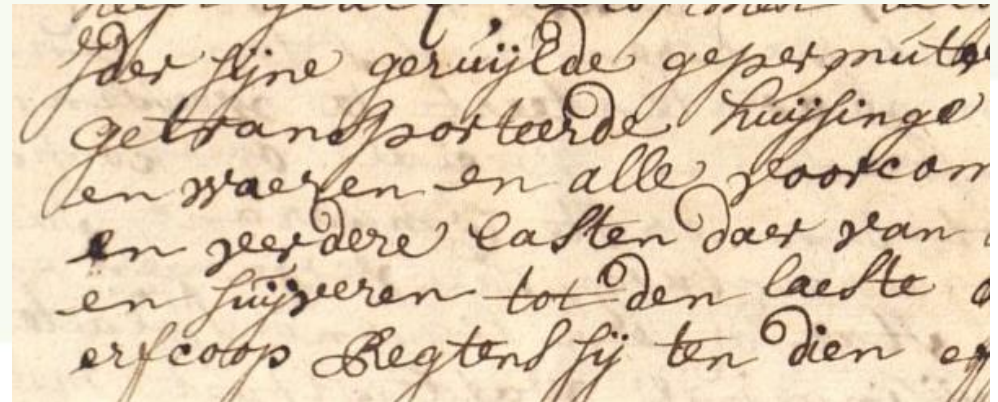 Ider sijne geruijlde gepermutee
getransporteerde huijsinge
en waeren en alle voorcom
en verdere lasten daer van
en suijveren tot den laeste
erfcoop Regtens sij ten dien